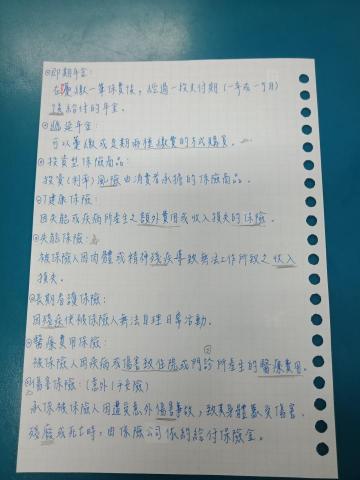 ◎即期年金:
在躉繳一筆保費後，經過一按夫付期(一年或一个月)
後給付的年金。
◎遞延年金:
可以躉繳或定期兩種繳費的方式購買。
◎投資型保險商品:
投資(利率)風險由消費者承擔的保險商品。
◎健康保險:
因失能或疾病所產生之額外費用或收入損失的保險。
◎失能保險:
被保險人因肉體或精神殘疾導致無法工作所致之收入
損失。
◎長期看護保險:
因殘疾使被保險人無法自理日常活動。
◎醫療費用保險:
被保險人因疾病或傷害致住院或門診所產生的醫療費用。
◎傷害保險:(意外)(平安險)
承保被保險人因遭受意外傷害事故，致其身體蒙受傷害、
殘廢或死亡時，由保險公司依約給付保險金。